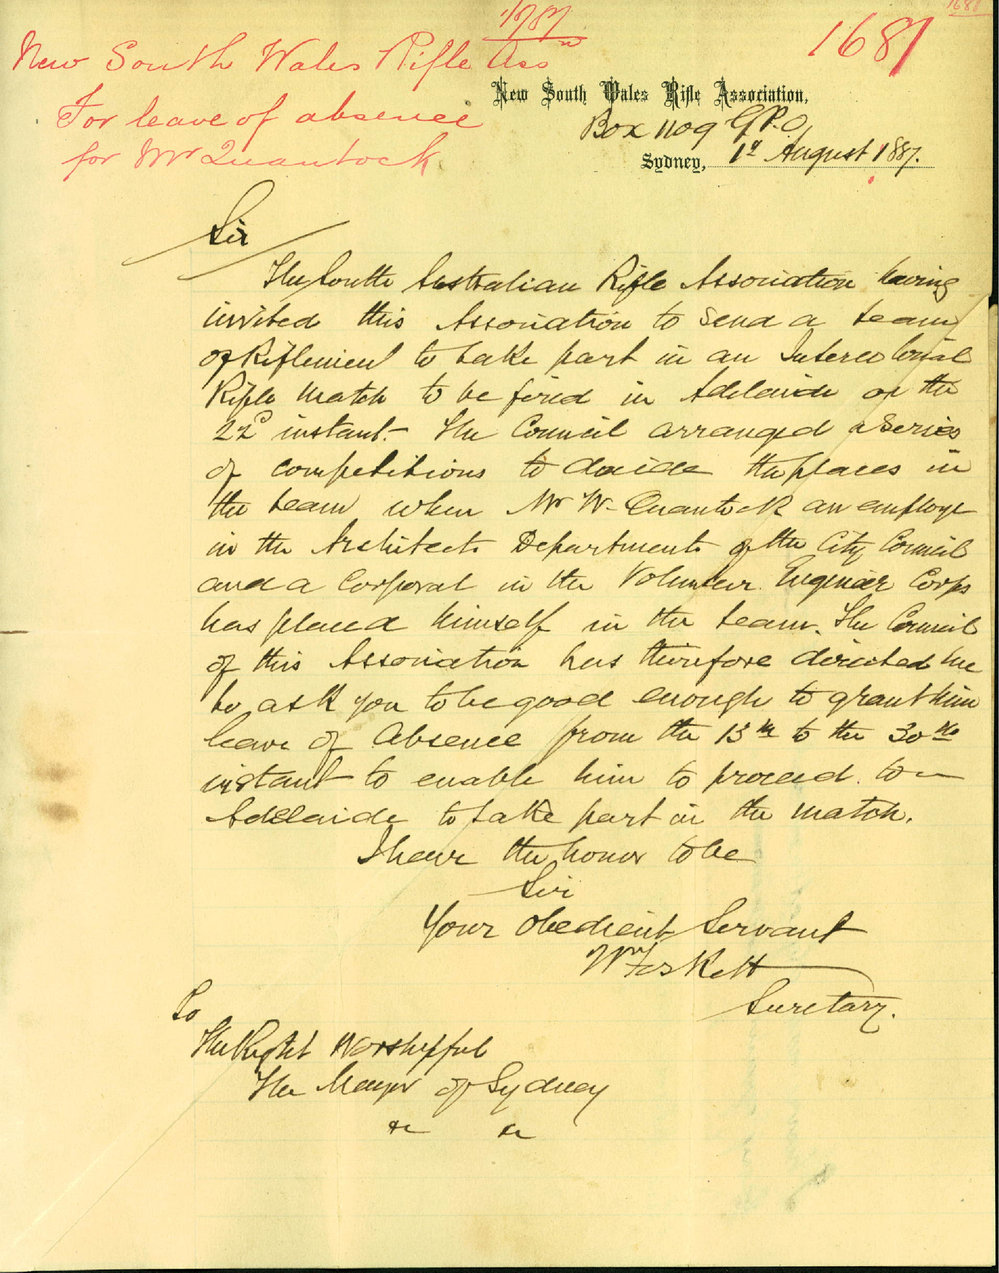 1787
1681
1681
New South Wales Rifle Assn
For leave of absence
for Mr Quantock
New South Wales Rifle Association,
Box 1109 G.P.O,
Sydney, 1st August 1887.
Sir
The South Australian Rifle Association having
invited this Association to send a team
of Riflemen to take part in an Intercolonial
Rifle Match to be fired in Adelaide on the
22d instant. The Council arranged a series
of competitions to decide the places in
the team when Mr W. Quantock an employe
in the Architects Department of the City Council
and a Corporal in the Volunteer Engineer Corps
has placed himself in the team. The Council
of this Association has therefore directed me
to ask you to be good enough to grant him
leave of absence from the 13th to the 30th
instant to enable him to proceed to
Adelaide to take part in the match.
I have the honor to be
Sir
Your Obedient Servant
Wm Foskett
Secretary.
To
The Right Worshipful
The Mayor of Sydney
&c &c